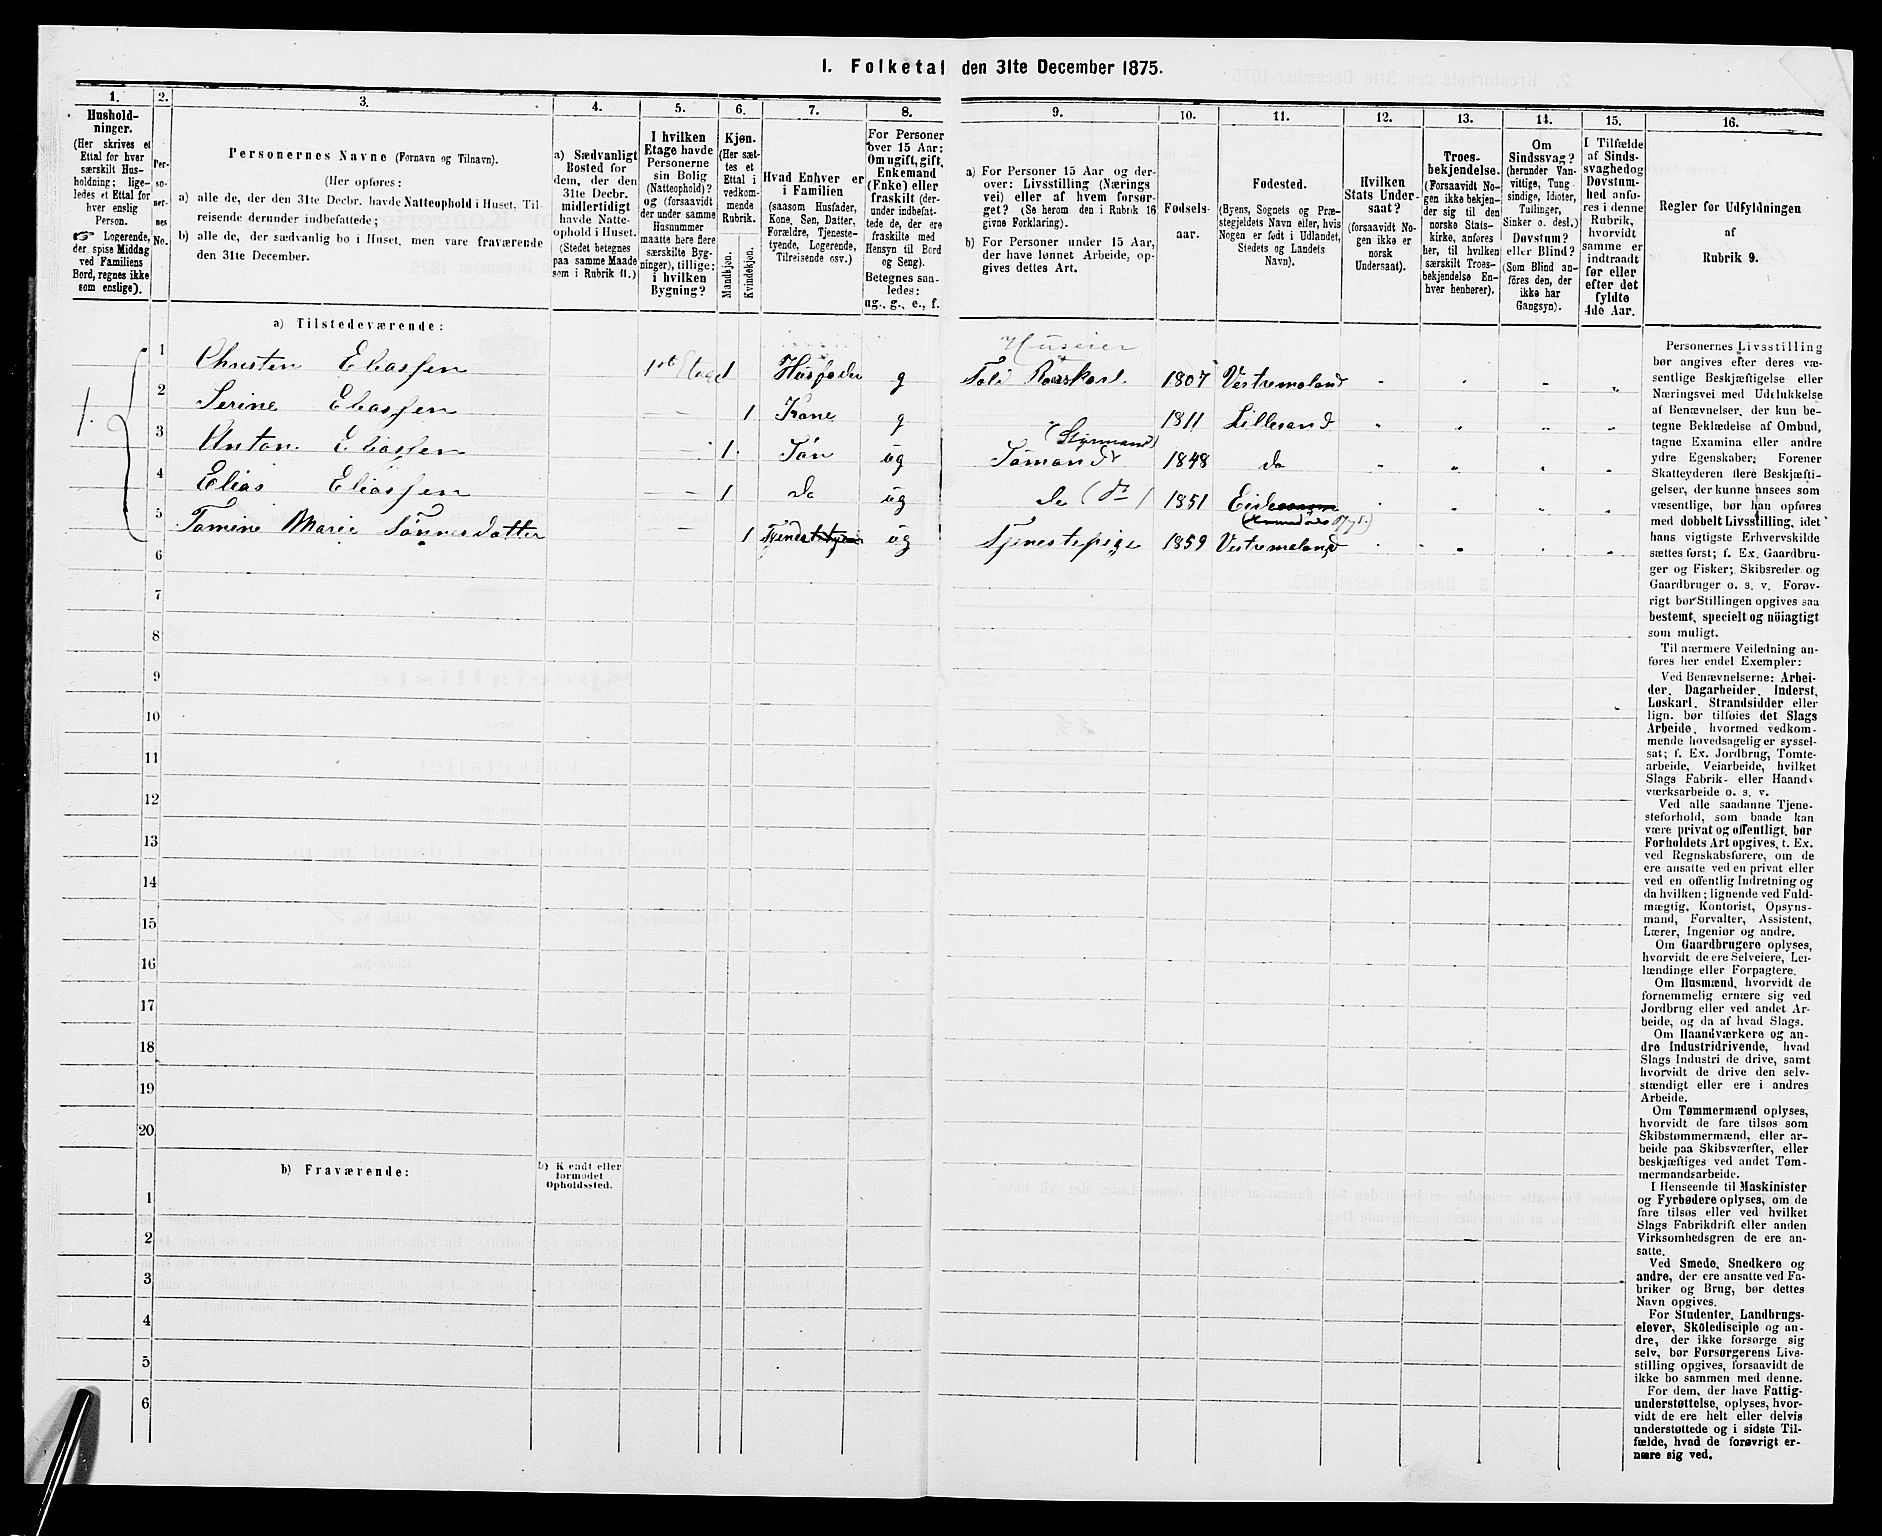 1. Folketal den 31te December 1875.
1. 2. 3. 4. 5. 6. 7. 8. 9. 10. 11. 12. 13. 14. 15. 16.
Hushold-
ninger.
(Her skrives et
Ettal for hver
særskilt Hus-
holdning; lige-
ledes et Ettal for
hver enslig
Person.
☞ Logerende,
der spise Middag
ved Familiens
Bord, regnes ikke
som enslige).
Per-
so-
ner-
nes
No.
Personernes Navne (Fornavn og Tilnavn).
(Her opføres:
a) alle de, der den 31te Decbr. havde Natteophold i Huset, Til-
reisende derunder indbefattede;
b) alle de, der sædvanlig bo i Huset, men vare fraværende
den 31te December.
a) Sædvanligt
Bosted for
dem, der den
31te Decbr.
midlertidigt
havde Natte-
ophold i Huset.
(Stedet betegnes
paa samme Maade
som i Rubrik 11.)
I hvilken
Etage havde
Personerne
sin Bolig
(Natteophold)?
og (forsaavidt
der under samme
Husnummer
maatte høre flere
særskilte Byg-
ninger), tillige:
i hvilken
Bygning?
Kjøn.
(Her sæt-
tes et
Ettal i
vedkom-
mende
Rubrik.
Mandkjøn.
Kvindekjøn.
Hvad Enhver er
i Familien
(saasom Husfader,
Kone, Søn, Datter,
Forældre, Tjeneste-
tyende, Logerende,
Tilreisende osv.)
For Personer
over 15 Aar:
Om ugift, gift,
Enkemand
(Enke) eller
fraskilt (der-
under indbefat-
tede de, der ere
fraskilte med
Hensyn til Bord
og Seng).
Betegnes saa-
ledes:
ug., g., e., f.
a) For Personer 15 Aar og der-
over: Livsstilling (Nærings
vei) eller af hvem forsør-
get? (Se herom den i Rubrik 16
givne Forklaring).
b) For Personer under 15 Aar,
der have lønnet Arbeide, op-
gives dettes Art.
Fødsels-
aar.
Fødested.
(Byens, Sognets og Præ-
stegjeldets Navn eller, hvis
Nogen er født i Udlandet,
Stedets og Landets
Navn).
Hvilken
Stats Under-
saat?
(forsaavidt No-
gen ikke er
norsk
Undersaat).
Troes-
bekjendelse.
(Forsaavidt No-
gen ikke bekjen-
der sig til den
norske Stats-
kirke, anføres
her, til hvilken
særskilt Troes-
bekjendelse En-
hver henhører).
Om
Sindssvag?
(herunder Van-
vittige, Tung
sindige, Idioter,
Tullinger,
Sinker o. desl.)
Døvstum?
eller Blind?
(Som Blind an-
føres den, der
ikke har
Gangsyn).
I Tilfælde
af Sinds-
svaghed og
Døvstum-
hed anfø-
res i denne
Rubrik,
hvorvidt
samme er
indtraadt
før eller
efter det
fyldte
4de Aar.
Regler for Udfyldningen
af
Rubrik 9.
a) Tilstedeværende:
Huseier
1 Christen Eliassen 1ste Etage 1 Husfader g Told Roerskarl 1807 Vestremoland
1.
2 Serine Eliassen 1 Kone g 1811 Lillesand
(Styrmand)
3 Anton Eliassen 1 Søn ug Sømand 1848 do
4 Elias Eliassen 1 do ug do (do) 1851
5 Tomine Marie Tønnesdatter 1 ug Tjenestepige 1859 Vestremoland
6
7
8
9
10
11
12
13
14
15
16
17
18
19
20
b) Fraværende:
b) Kendt eller
formodet
Opholdssted.
1
2
3
4
5
6
Personernes Livsstilling
bør angives efter deres væ-
sentlige Beskjæftigelse eller
Næringsvei med Udelukkelse
af Benævnelser, der kun be-
tegne Beklædelse af Ombud,
tagne Examina eller andre
ydre Egenskaber; Forener
Skatteyderen flere Beskjæfti-
gelser, der kunne ansees som
væsentlige, bør han opføres
med dobbelt Livsstilling, idet
hans vigtigste Erhvervskilde
sættes først; f. Ex. Gaardbru-
ger og Fisker; Skibsreder og
Gaardbruger o. s. v. Forøv-
rigt bør Stillingen opgives saa
bestemt, specielt og nöiagtigt
som muligt.
Til nærmere Veiledning an-
føres her endel Exempler:
Ved Benævnelserne: Arbei-
der, Dagarbeider, Inderst,
Løskarl, Strandsidder eller
lign. bør tilføies det Slags
Arbeide, hvormed vedkom-
mende hovedsagelig er syssel-
sat; f. Ex. Jordbrug, Tomte-
arbeide, Veiarbeide, hvilket
Slags Fabrik- eller Haand-
værksarbeide o. s. v.
Ved alle saadanne Tjene-
steforhold, som baade kan
være privat og offentligt, bør
Forholdets Art opgives, t. Ex.
ved Regnskabsførere, om de
ere ansatte ved en privat eller
ved en offentlig Indretning og
da hvilken; lignende ved Fuld-
mægtig, Kontorist, Opsyns-
mand, Forvalter, Assistent,
Lærer, Ingeniør og andre.
Om Gaardbrugere oplyses,
hvorvidt de ere Selveiere, Lei-
lændinge eller Forpagtere.
Om Husmænd, hvorvidt de
fornemmelig ernære sig ved
Jordbrug eller ved andet Ar-
beide, og da af hvad Slags.
Om Haandværkere og an-
dre Industridrivende, hvad
Slags Industri de drive, samt
hvorvidt de drive den selv-
stændigt eller ere i andres
Arbeide.
Om Tømmermænd oplyses,
hvorvidt de fare tilsøs som
Skibstømmermænd, eller ar-
beide paa Skibsværfter, eller
beskjæftiges ved andet Tøm-
mermandsarbeide.
I Henseende til Maskinister
og Fyrbødere oplyses, om de
fare tilsøs eller ved hvilket
Slags Fabrikdrift eller anden
Virksomhedsgren de ere an-
satte.
Ved Smede, Snedkere og
andre, der ere ansatte ved Fa-
briker og Brug, bør dettes
Navn opgives.
For Studenter, Landbrugs-
elever, Skoledisciple og an-
dre, der ikke forsørge sig
selv, bør Forsørgerens Livs-
stilling opgives, forsaavidt de
ikke bo sammen med denne.
For dem, der have Fattig-
understøttelse, oplyses, hvor-
vidt de ere helt eller delvis
understøttede og i sidste Til-
fælde, hvad de forøvrigt er-
nære sig ved.